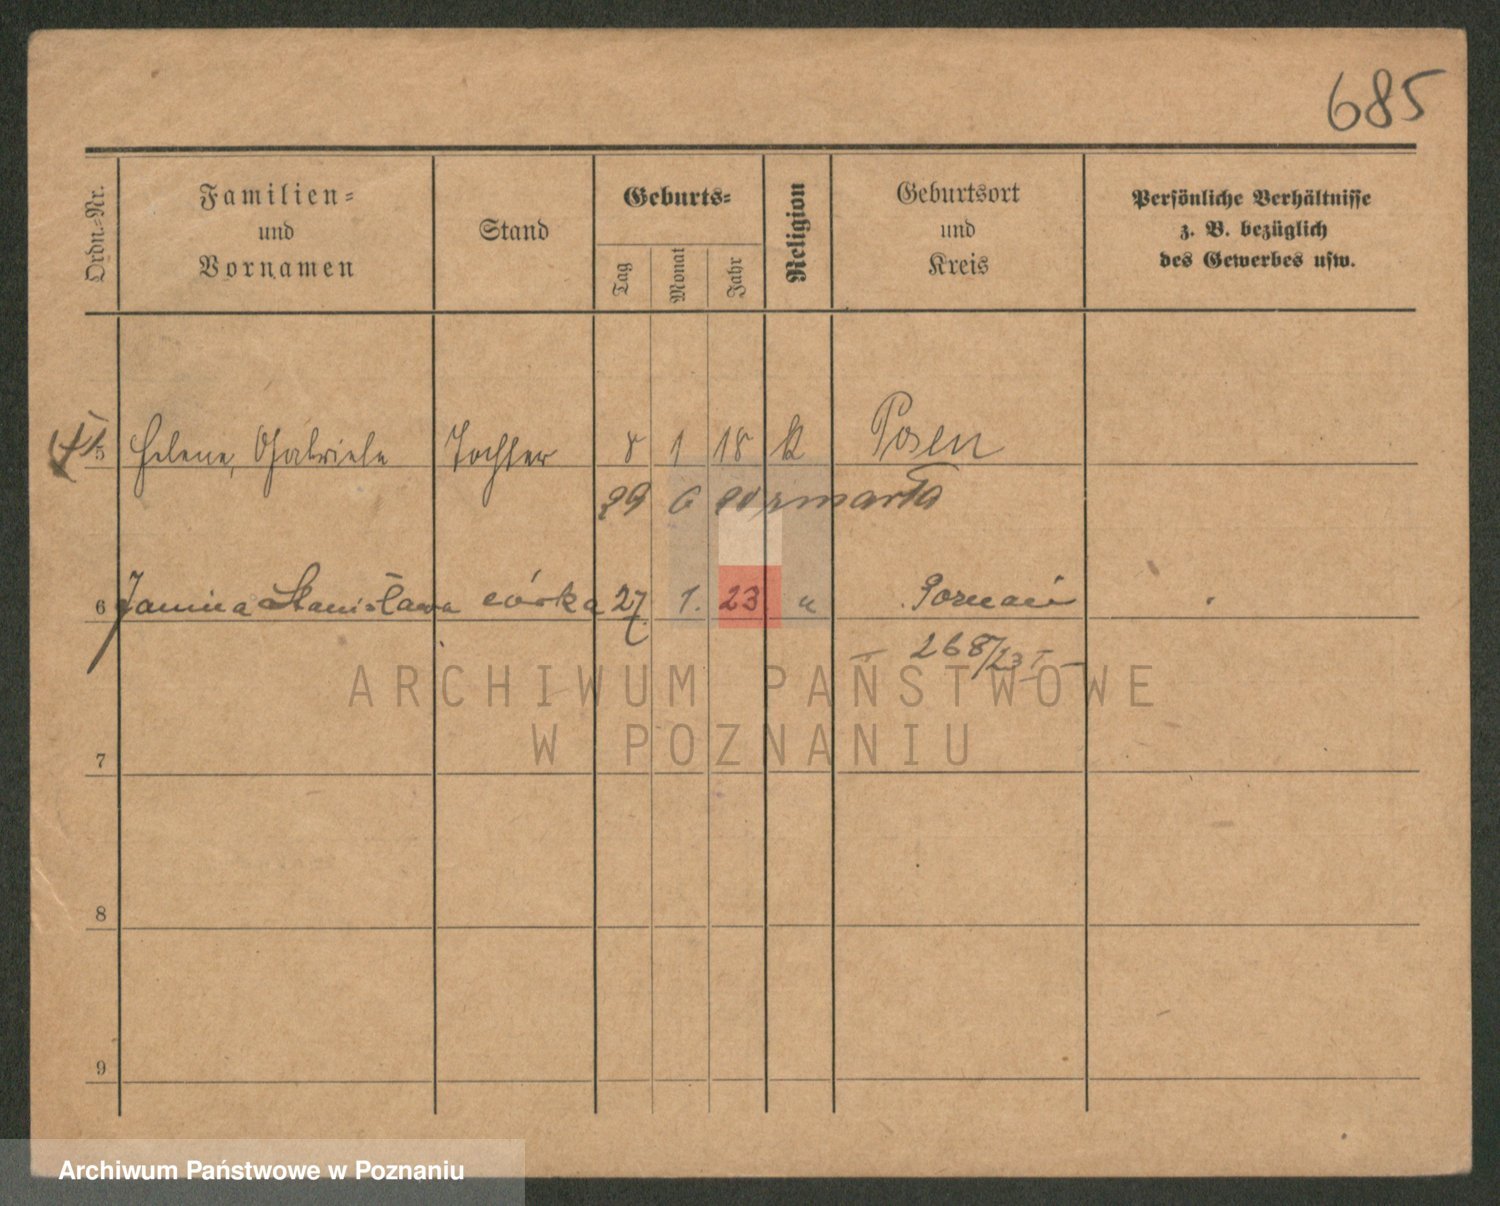 685
Ordn.-Nr.
Familien-
und
Vornamen
Stand
Geburts-
Tag
Monat
Jahr
Religion
Geburtsort
und
Kreis
Persönliche Verhältnisse
z. B. bezüglich
des Gewerbes usw.
5 Helene, Gabriele Tochter 8 1 18 k Posen
29 6 20 zmarła
6 Janina Stanisława córka 27 1. 23 " Poznań
268/23 I
ARCHIWUM PAŃSTWOWE
W POZNANIU
7
8
9
Archiwum Państwowe w Poznaniu